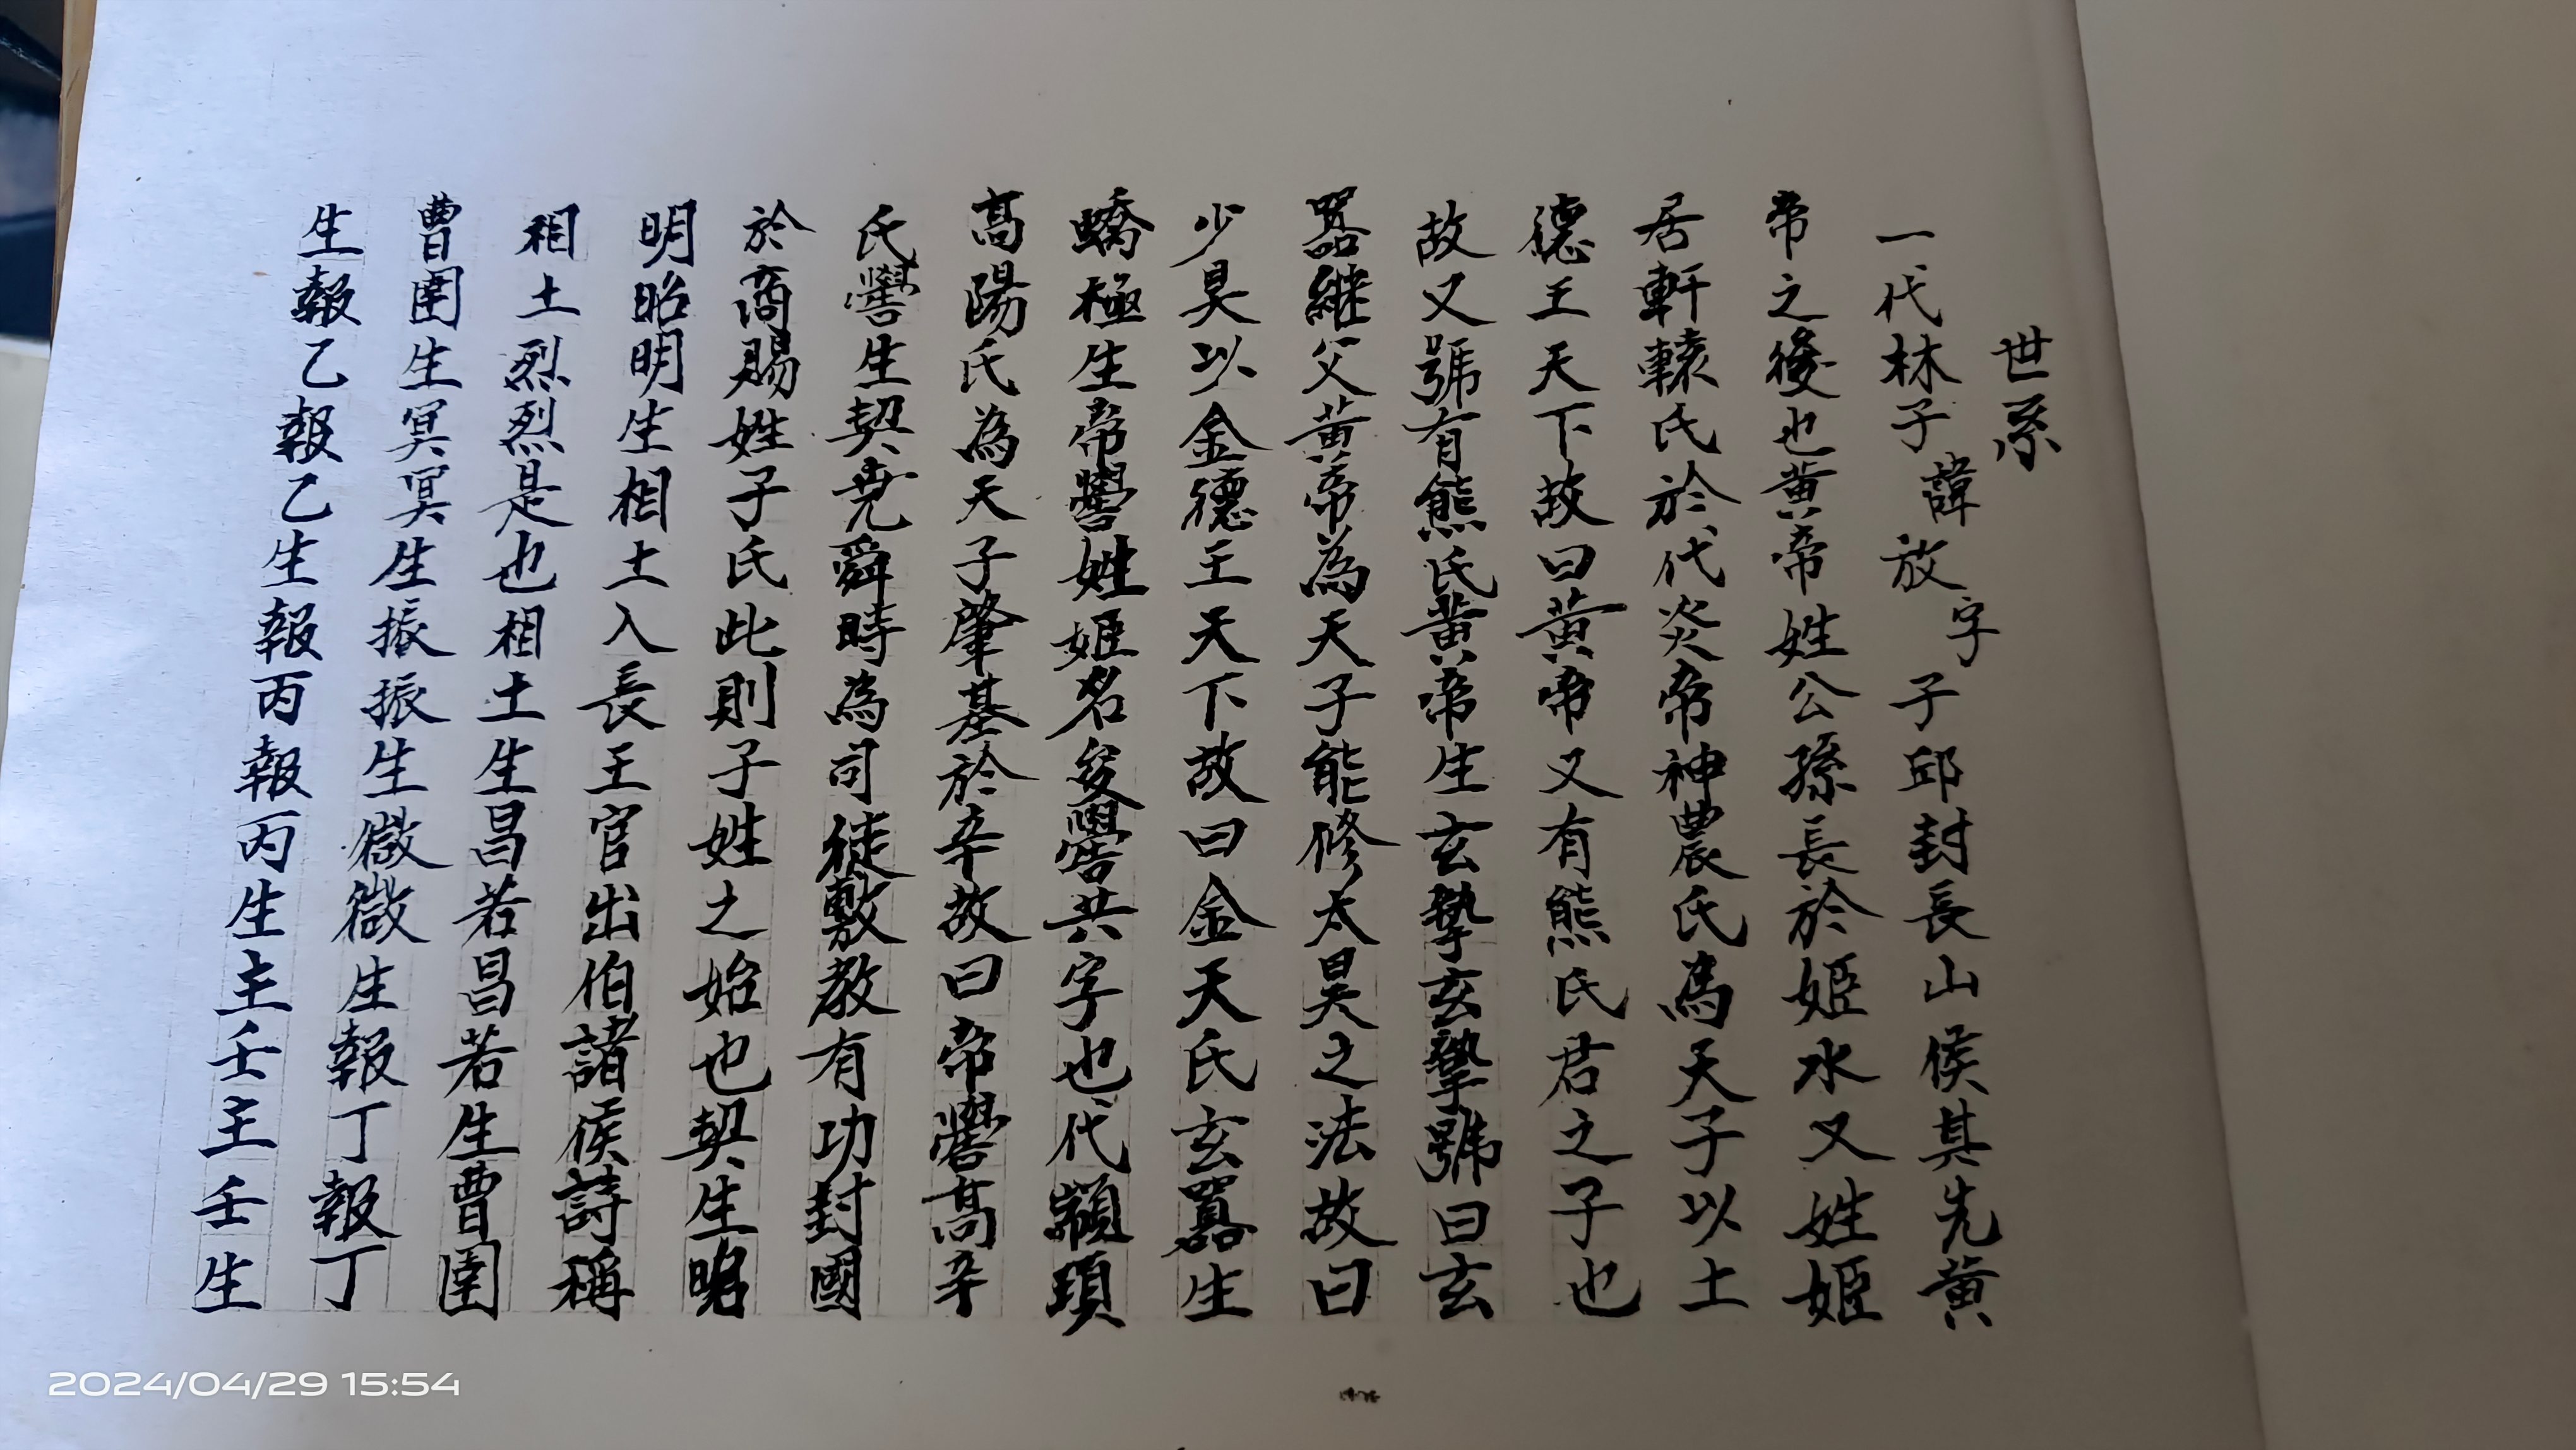 世系
一代林子諱放字子邱封長山侯其先黄
帝之後也黄帝姓公孫長於姬水又姓姬
居軒轅氏於代炎帝神農氏為天子以土
德王天下故曰黄帝又有熊氏君之子也
故又號有熊氏黄帝生玄摯玄摯號曰玄
囂継父黄帝為天子能修太昊之法故曰
少昊以金德王天下故曰金天氏玄囂生
蟜極生帝嚳姓姬名夋嚳其字也代顓頊
高陽氏為天子肇基於辛故曰帝嚳高辛
氏嚳生契堯舜時為司徒敷教有功封國
於商賜姓子氏此則子姓之始也契生昭
明昭明生相土入長王官出伯諸侯詩稱
相土烈烈是也相土生昌若昌若生曹圉
曹圉生冥冥生振振生微微生報丁報丁
生報乙報乙生報丙報丙生主壬主壬生
2024/04/29 15:54